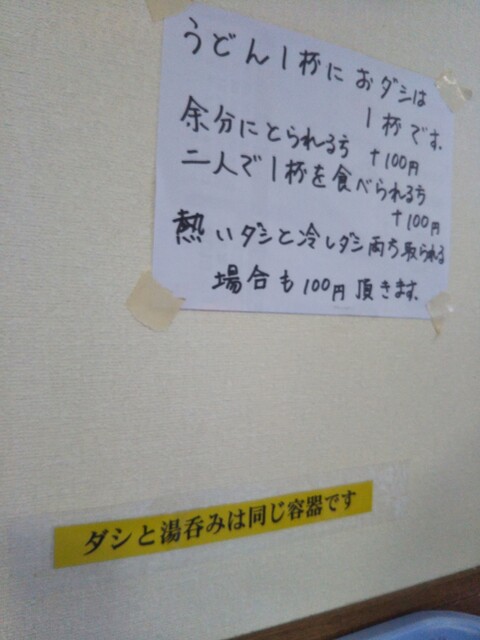 うどん1杯におダシは
1杯です.
余分にとられる方 +100円
二人で1杯を食べられる方
+100円
熱いダシと冷しダシ両方取られる
場合も100円頂きます.
ダシと湯呑みは同じ容器です